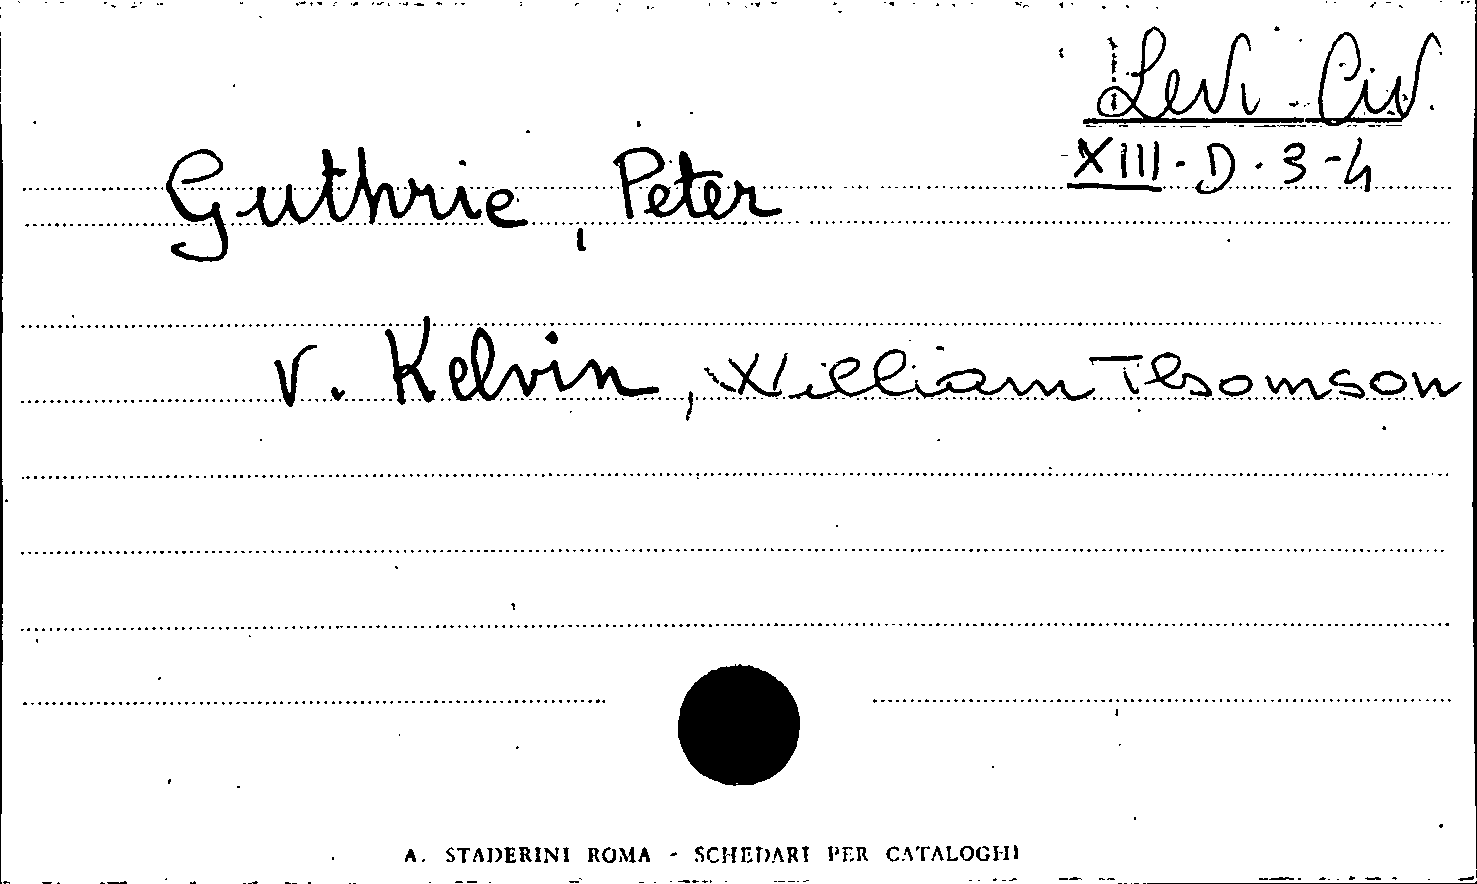 Levi-Civ.
XIII.D.3-4
Guthrie, Peter
v. Kelvin, William Thomson
A. STADERINI ROMA - SCHEDARI PER CATALOGHI